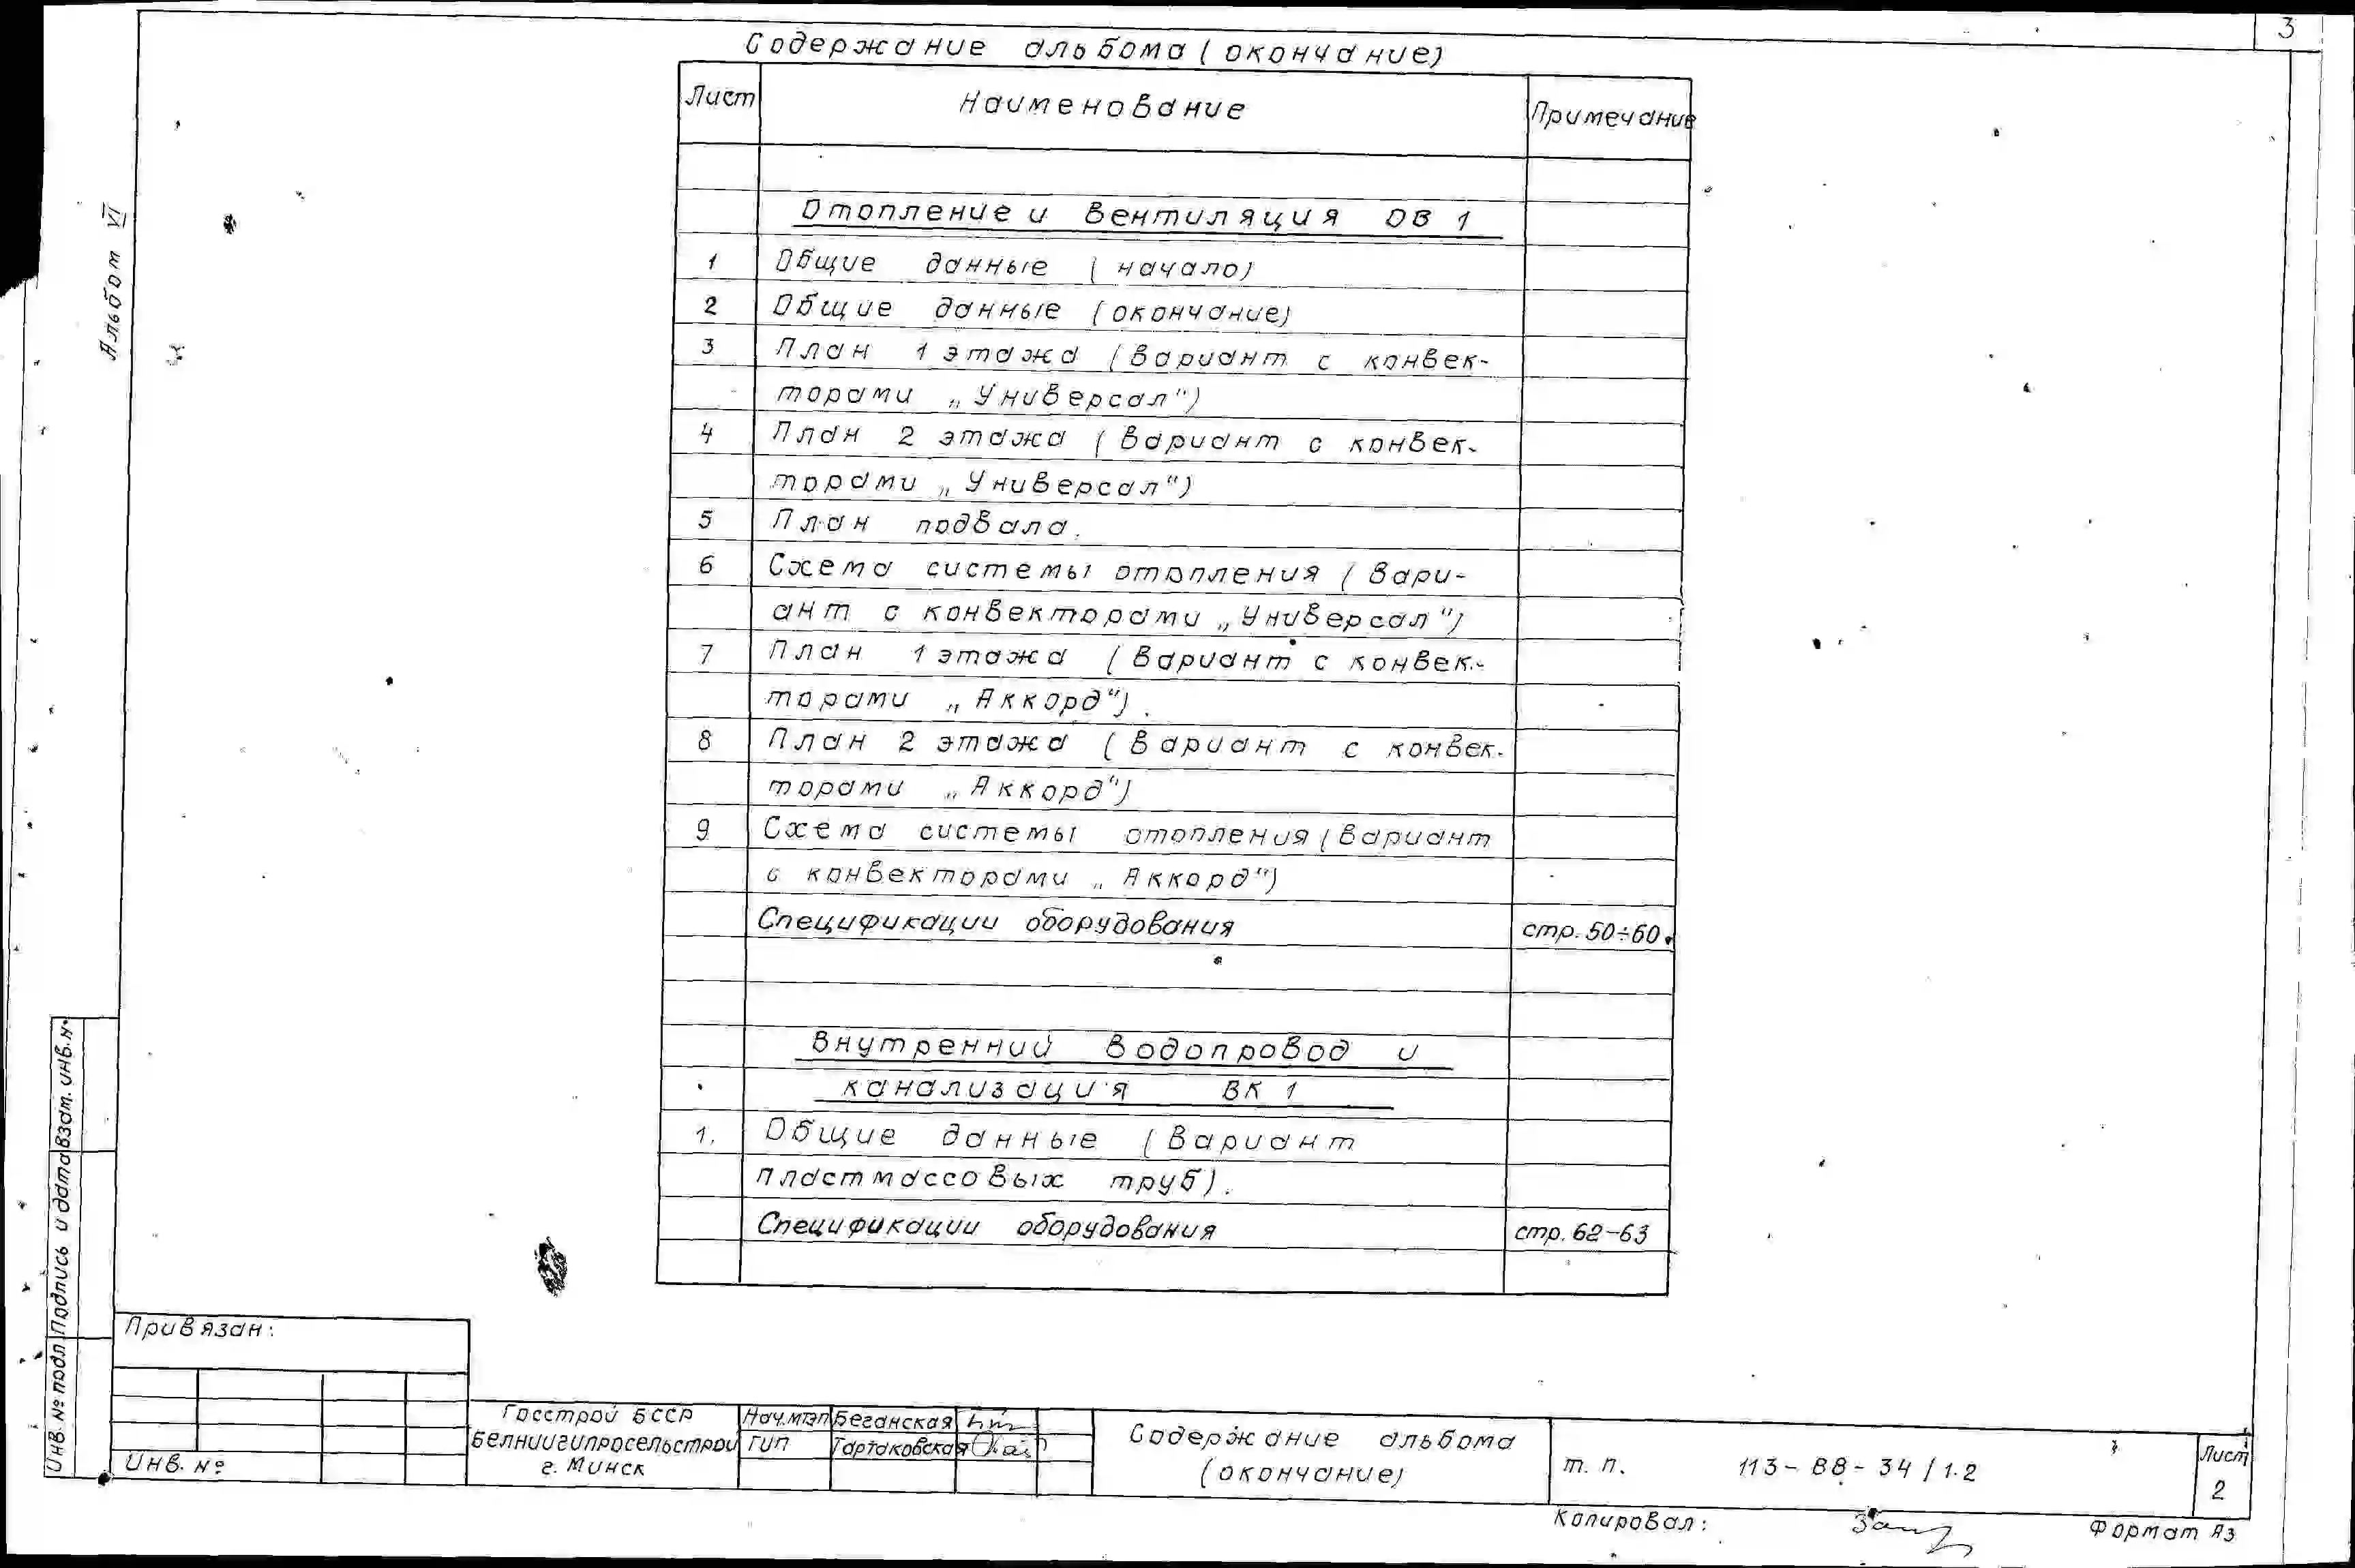 3
Содержание альбома (окончание)
Лист Наименование Примечание
Отопление и вентиляция ОВ 1
1 Общие данные (начало)
2 Общие данные (окончание)
3 План 1 этажа (вариант с конвек-
торами „Универсал")
4 План 2 этажа (вариант с конвек-
торами „Универсал")
5 План подвала.
6 Схема системы отопления (вари-
ант с конвекторами „Универсал")
7 План 1 этажа (вариант с конвек-
торами „Аккорд").
8 План 2 этажа (вариант с конвек-
торами „Аккорд")
9 Схема системы отопления (вариант
с конвекторами „Аккорд")
Спецификации оборудования стр. 50÷60.
Внутренний водопровод и
канализация ВК 1
1. Общие данные (вариант
пластмассовых труб).
Спецификации оборудования стр. 62-63
Альбом VI
Взам. инв. №
Подпись и дата
Инв. № подл
Привязан:
Инв. №
Госстрой БССР
Белниигипросельстрой
г. Минск
Нач.мтэп Беганская
ГИП Тартаковская
Содержание альбома
(окончание)
т. п. 113-88-34/1.2
Лист
2
Копировал:
Формат А3